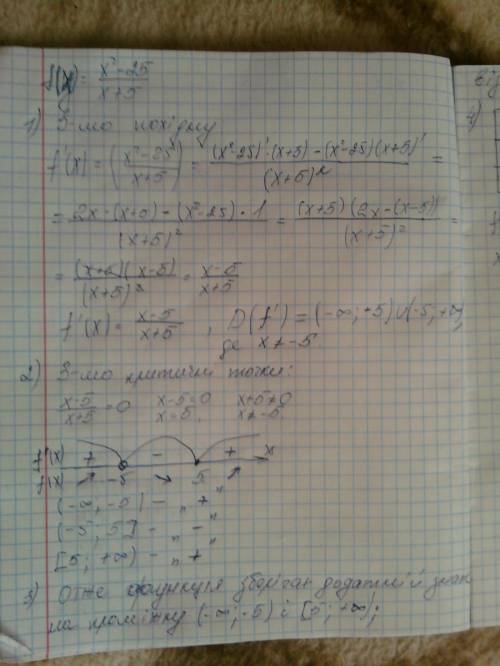 f(x) = x²-25 / x+5
1) З-мо похідну
f'(x) = (x²-25 / x+5)' = (x²-25)'·(x+5) - (x²-25)(x+5)' / (x+5)² =
= 2x·(x+5) - (x²-25)·1 / (x+5)² = (x+5)(2x-(x-5)) / (x+5)² =
= (x+5)(x-5) / (x+5)² = x-5 / x+5
f'(x) = x-5 / x+5 , D(f') = (-∞; -5)∪(-5; +∞)
де x ≠ -5
2) З-мо критичні точки:
x-5 / x+5 = 0 x-5=0 x+5≠0
x=5, x≠-5
f'(x) + - + x
f(x) ↗ -5 ↘ 5 ↗
(-∞, -5) - „+"
(-5, 5] - „-"
[5; +∞) - „+"
3) Отже функція зберігає додатній знак
на проміжку (-∞; -5) і [5; +∞);
Від
4)